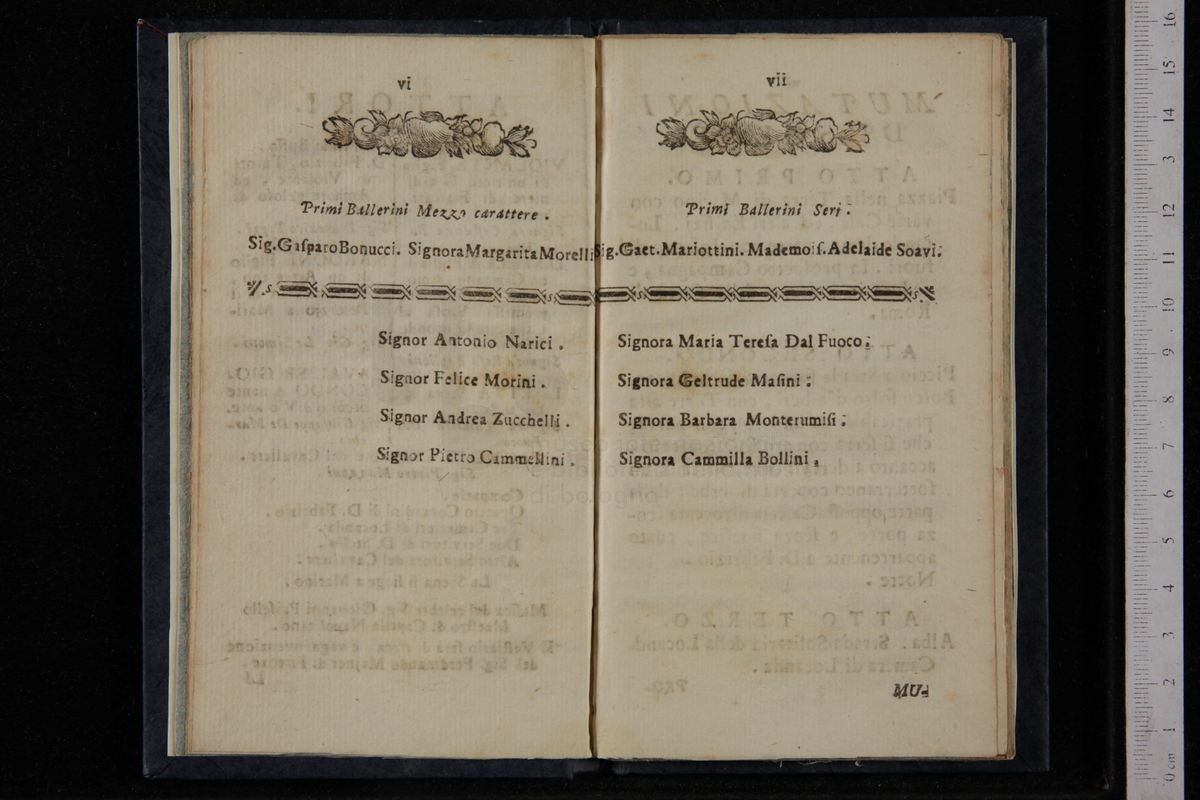 vi
Primi Ballerini Mezzo carattere.
Sig. Gaſparo Bonucci. Signora Margarita Morelli
Signor Antonio Narici.
Signor Felice Morini.
Signor Andrea Zucchelli.
Signor Pietro Cammellini.
vii
Primi Ballerini Serj.
Sig. Gaet. Mariottini. Mademoiſ. Adelaide Soavi.
Signora Maria Tereſa Dal Fuoco.
Signora Geltrude Maſini.
Signora Barbara Monterumiſi.
Signora Cammilla Bollini.
MU-
0 cm 1 2 3 4 5 6 7 8 9 10 11 12 13 14 15 16